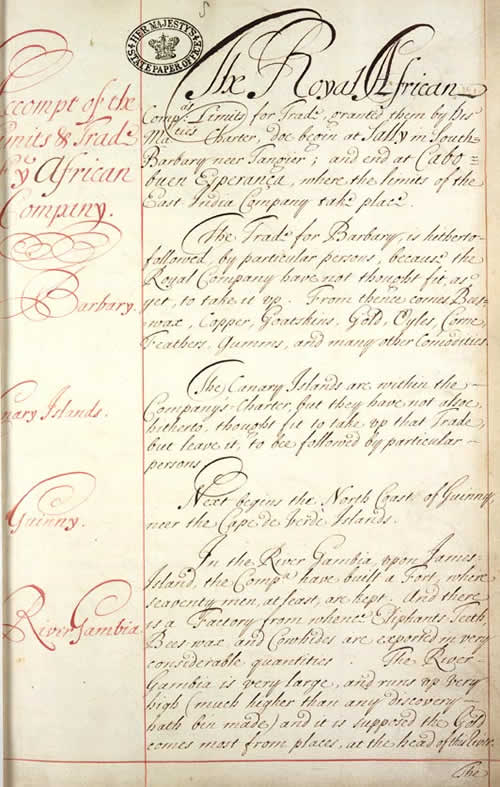 5
HER MAJESTY'S STATE PAPER OFFICE
Accompt of the
Limits & Trade
of ye African
Company.
The Royal African
Comp.as Limits for Trade, granted them by his
Ma.ties Charter, doe begin at Sally in South
Barbary neer Tangier; and end at Cabo
buen Esperança, where the limits of the
East India Company take place.
Barbary.
The Trade for Barbary, is hitherto
followed, by particular persons, because the
Royal Company have not thought fit, as
yet, to take it up. From thence comes Bees-
wax, Copper, Goatskins, Gold, Oyles, Corne
Feathers, Gumms, and many other Comodities.
Canary Islands.
The Canary Islands are within the
Company's Charter, but they have not alsoe,
hitherto, thought fit to take up that Trade,
but leave it, to be followed by particular
persons.
Guinny.
Next begins the North Coast of Guinny,
neer the Cape de Verde Islands.
River Gambia.
In the River Gambia, upon James
Island, the Comp.a have built a Fort, where
seaventy men, at least, are kept. And there
is a Factory from whence Eliphants Teeth,
Bees-wax, and Cowhides are exported in very
considerable quantities. The River
Gambia is very large, and runs up very
high (much higher than any discovery
hath bin made) and it is supposed the Gold
comes most from places, at the head of this River.
The